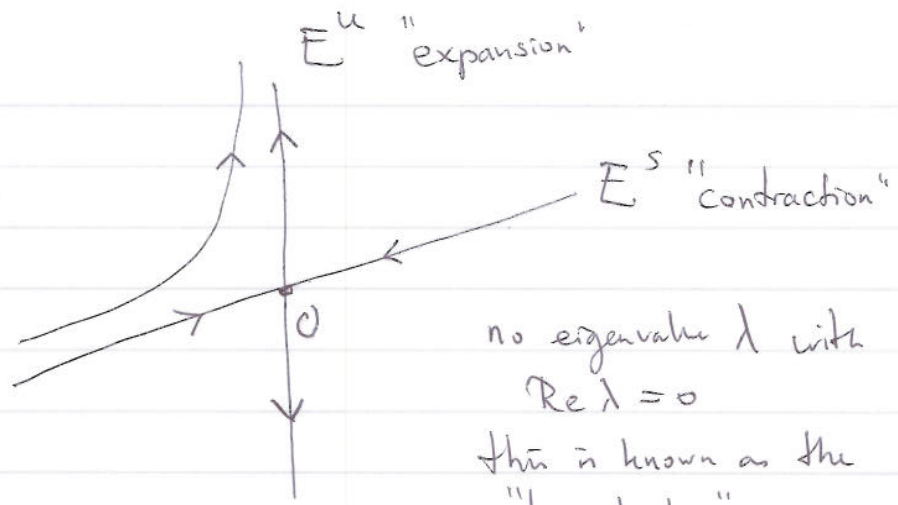 E^u "expansion"
E^s "contraction"
O
no eigenvalue λ with
Re λ = 0
this is known as the